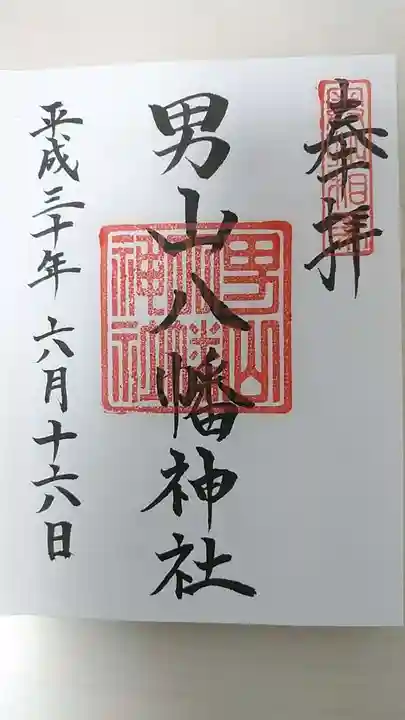 奉拝
男山八幡神社
男山八幡神社
平成三十年 六月十六日